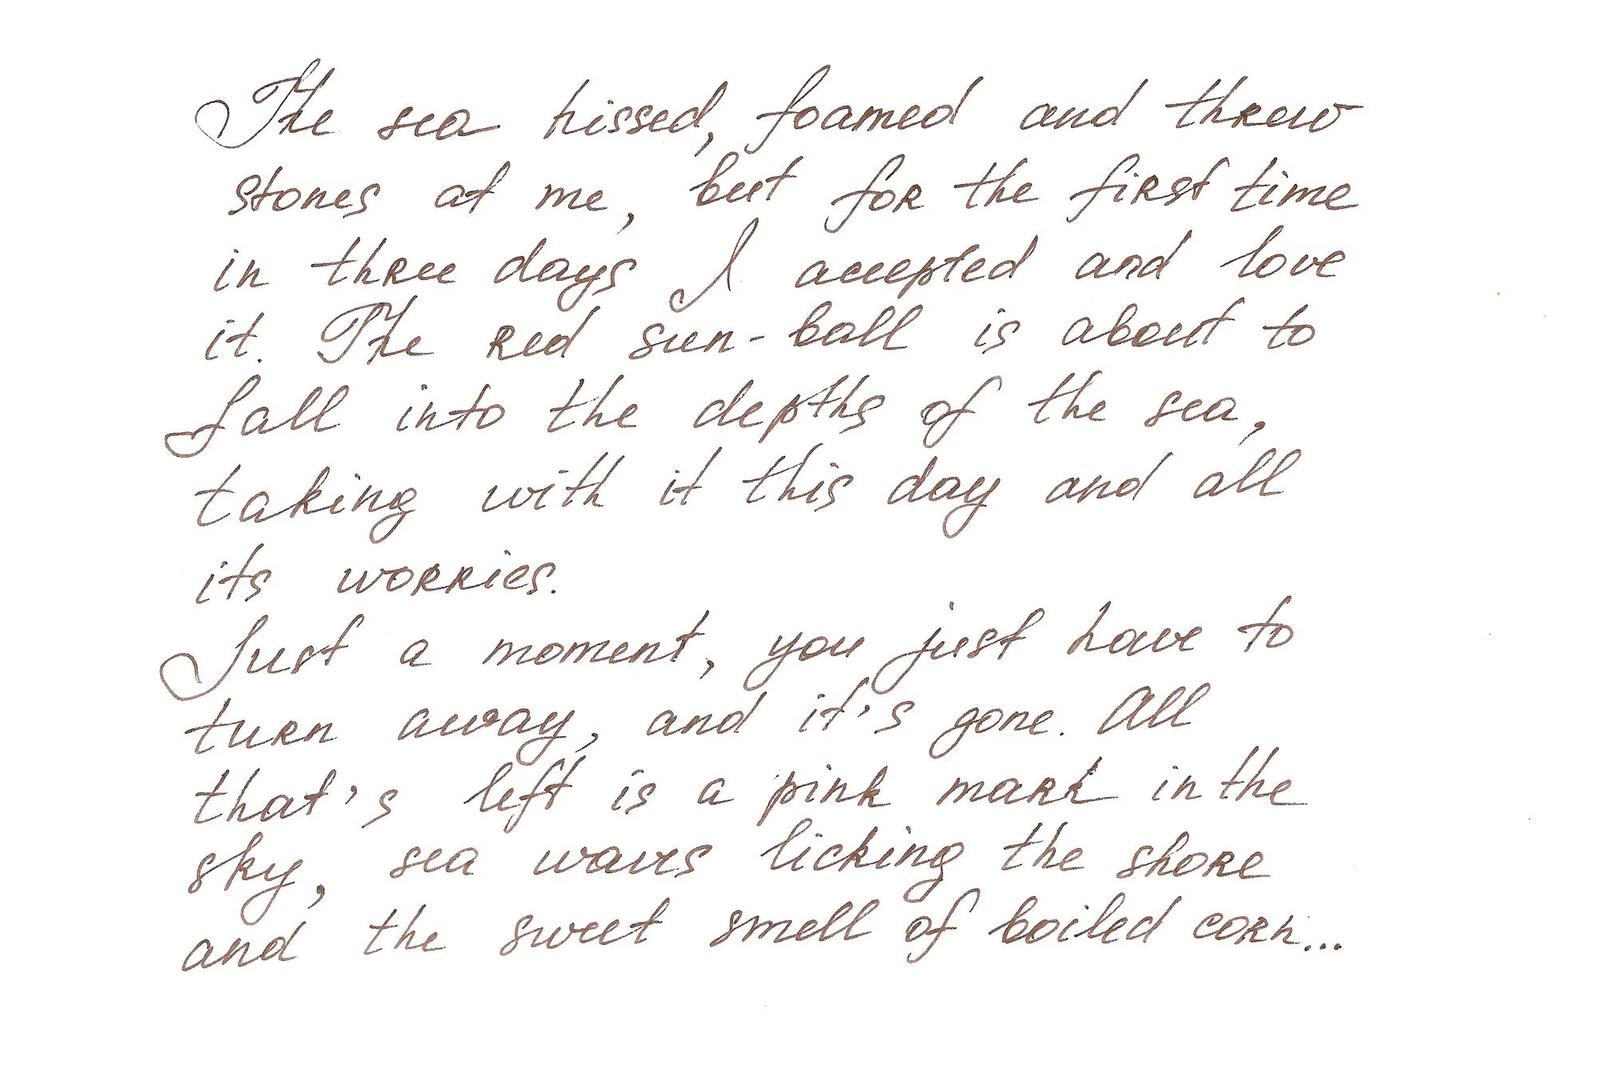 The sea hissed, foamed and threw
stones at me, but for the first time
in three days I accepted and love
it. The red sun-ball is about to
fall into the depths of the sea,
taking with it this day and all
its worries.
Just a moment, you just have to
turn away, and it's gone. All
that's left is a pink mark in the
sky, sea waves licking the shore
and the sweet smell of boiled corn...